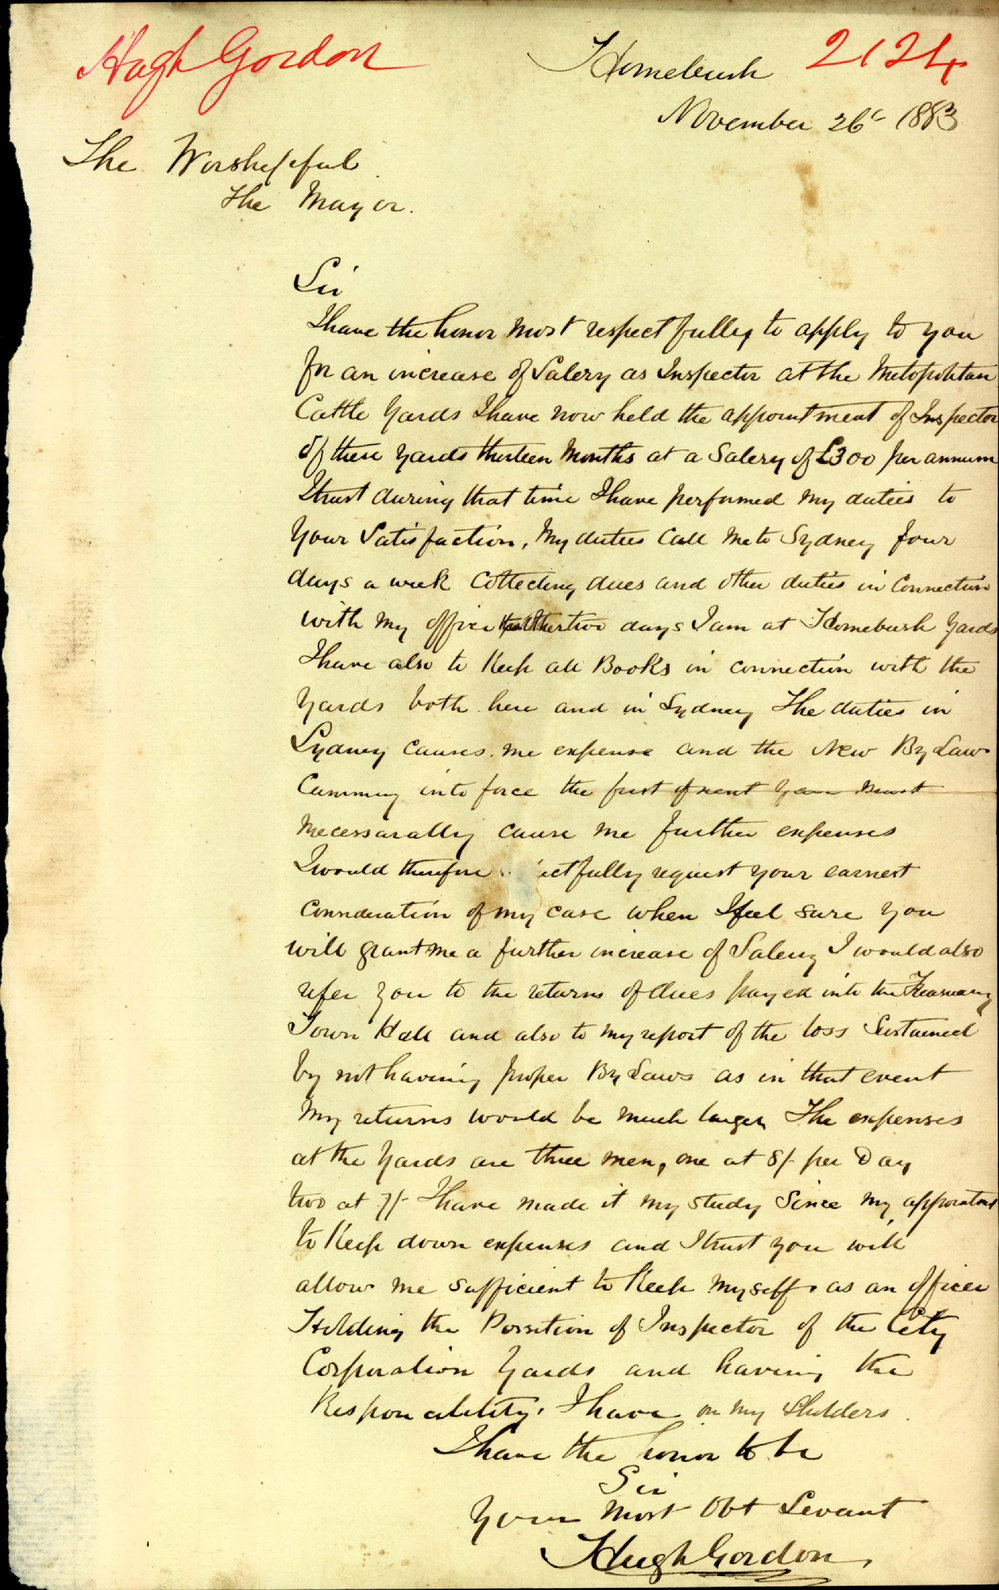 Hugh Gordon
2124
Homebush
November 26th 1883
The Worshipful
The Mayor.
Sir
I have the honor most respectfully to apply to you
for an increase of Salery as Inspector at the Metopolitan
Cattle Yards I have now held the appointment of Inspector
of these Yards thirteen Months at a Salery of £300 per annum
I trust during that time I have performed my duties to
Your Satisfaction, My duties Call me to Sydney four
days a week Collecting dues and other duties in Connection
with my office the other two days I am at Homebush Yards
I have also to Keep all Books in connection with the
Yards both here and in Sydney The duties in
Sydney Causes me expense and the New By Laws
Cumming into force the first of next Year Must
Necessarally cause me further expenses
I would therefore ectfully request your earnest
Consideration of my case when I feel sure you
will grant me a further increase of Salery I would also
refer you to the returns of dues payed into the Treasuary
Town Hall and also to my report of the loss Sustained
by not having proper By Laws as in that event
My returns would be much larger The expenses
at the Yards are three men, one at 8/- per Day
two at 7/- I have made it my study Since my
to Keep down expenses and I trust you will
allow me sufficient to Keep myself as an officer
Holding the Position of Inspector of the City
Corporation Yards and having the
Responcibility I have on my Shilders
I have the honor to be
Sir
Your Most Obt Servant
Hugh Gordon